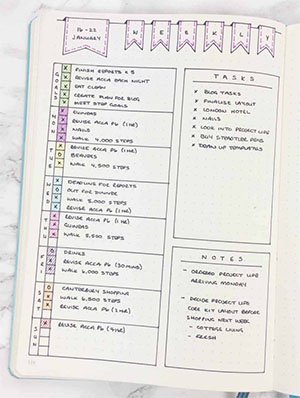 16-22
JANUARY
WEEKLY
GOALS
x FINISH REPORTS x 5
x REVISE ACCA EACH NIGHT
x EAT CLEAN
x CREATE PLAN FOR BLOG
x MEET STEP GOALS
MON
x GUINEAS
x REVISE ACCA P6 (1 HR)
x NAILS
x WALK 4,000 STEPS
TUE
x REVISE ACCA P6 (1 HR)
o BEAVERS
x WALK 4,500 STEPS
WED
x DEADLINE FOR REPORTS
o OUT FOR DINNER
x WALK 5,000 STEPS
x REVISE ACCA P6 (1 HR)
THU
x REVISE ACCA P6 (1 HR)
x GUINEAS
x WALK 5,500 STEPS
FRI
o DRINKS
x REVISE ACCA P6 (30 MINS)
x WALK 6,000 STEPS
SAT
o CANTERBURY SHOPPING
x WALK 6,500 STEPS
x REVISE ACCA P6 (1 HR)
SUN
x REVISE ACCA P6 (4 HR)
TASKS
x BLOG TASKS
x FINALISE LAYOUT
x LONDON HOTEL
x NAILS
x LOOK INTO PROJECT LIFE
x BUY STAEDTLER PENS
x DRAW UP TEMPLATES
NOTES
- ORDERED PROJECT LIFE
ARRIVING MONDAY
- DECIDE PROJECT LIFE
CORE KIT LAYOUT BEFORE
SHOPPING NEXT WEEK
- COTTAGE LIVING
- FRESH